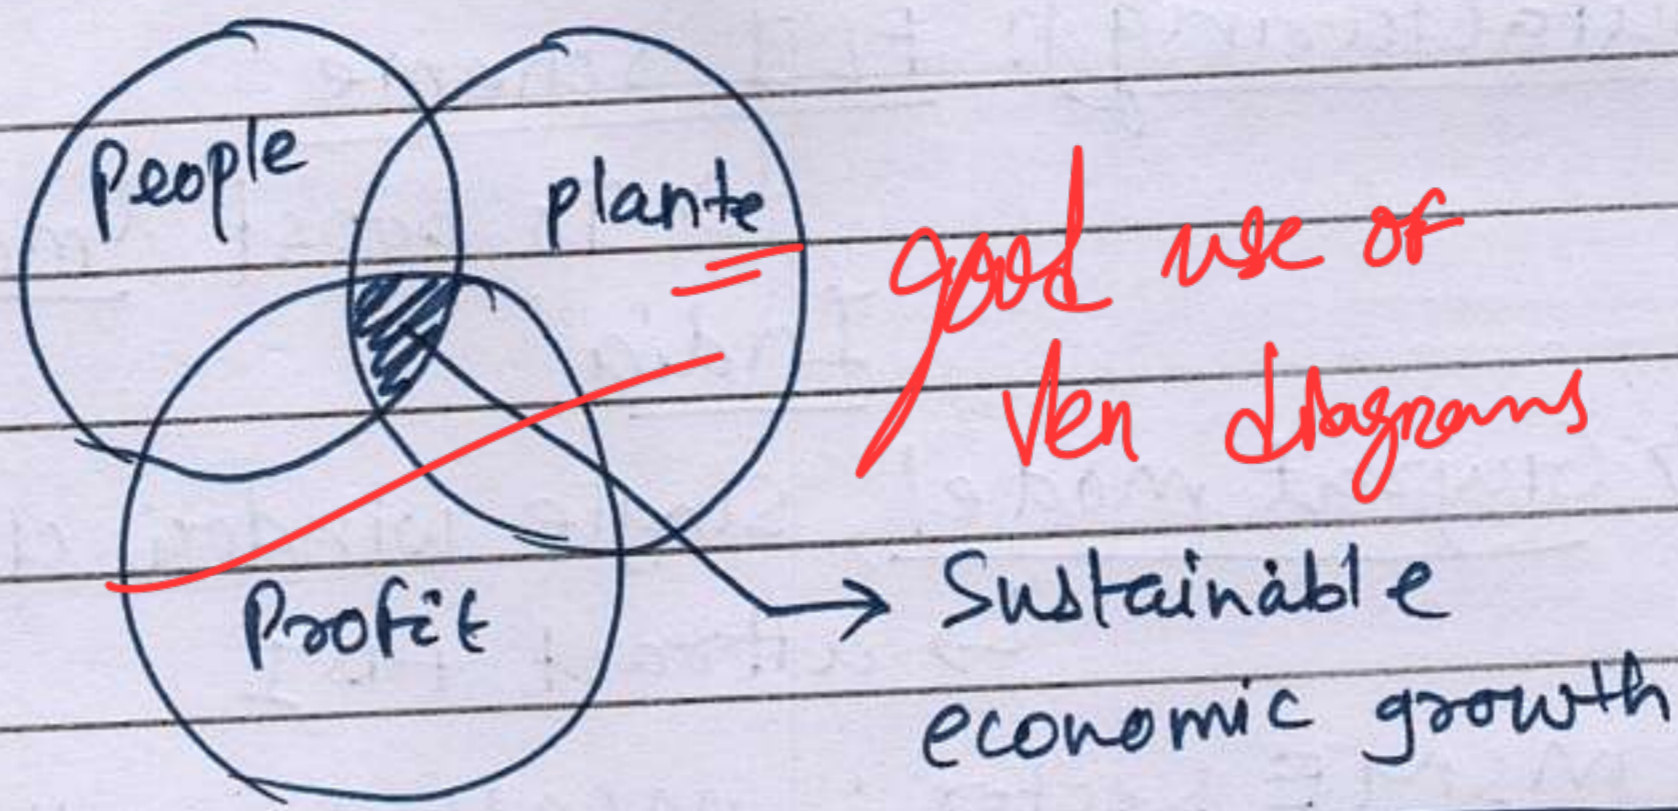 People
plante
good use of
Ven diagrams
Profit
Sustainable
economic growth